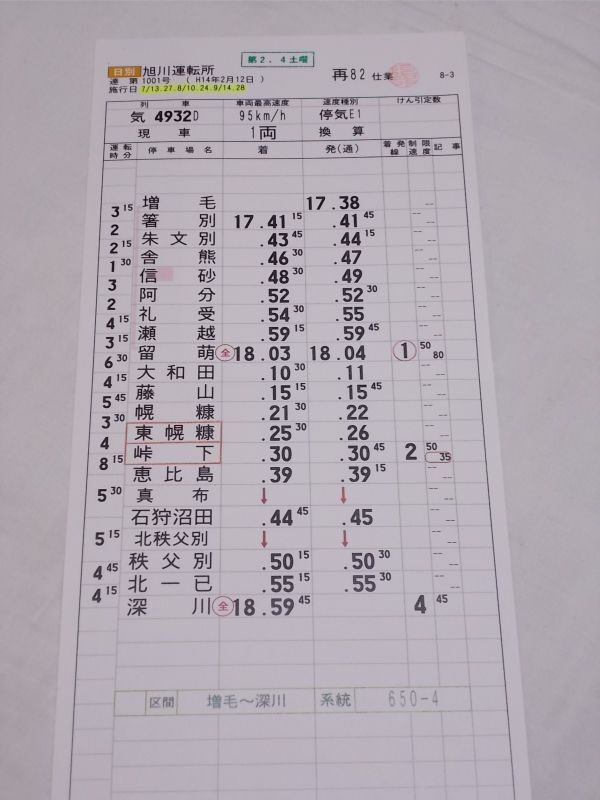 第2．4土曜
日別 旭川運転所 再82 仕業 8-3
達 第1001号 ( H14年2月12日 )
施行日 7/13.27.8/10.24.9/14.28
列車 車両最高速度 速度種別 けん引定数
気 4932D 95km/h 停気E1
現車 1両 換算
運転時分 停車場名 着 発(通) 着発線 制限速度 記事
増毛 17.38 --
3 15 箸別 17.41 15 .41 45 --
2 朱文別 .43 45 .44 15 --
2 15 舎熊 .46 30 .47 --
1 30 信砂 .48 30 .49 --
3 阿分 .52 .52 30 --
2 礼受 .54 30 .55 --
4 15 瀬越 .59 15 .59 45 --
3 15 留萌 全 18.03 18.04 1 50 80
6 30 大和田 .10 30 .11 --
4 15 藤山 .15 15 .15 45 --
5 45 幌糠 .21 30 .22 --
3 30 東幌糠 .25 30 .26 --
4 峠下 .30 .30 45 2 50 35
8 15 恵比島 .39 .39 15 --
5 30 真布 ↓ ↓ --
石狩沼田 .44 45 .45 --
5 15 北秩父別 ↓ ↓ --
秩父別 .50 15 .50 30 --
4 45 北一已 .55 15 .55 30 --
4 15 深川 全 18.59 45 4 45
区間 増毛～深川 系統 650-4